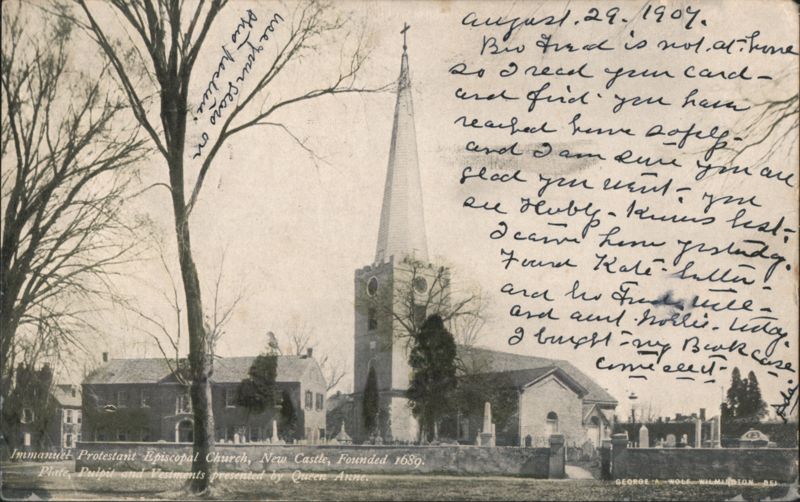 August. 29. 1907.
Bro Fred is not at home
so I read your card -
and find you have
reached home safely -
and I am sure you are
glad you went - you
see Hubby - Knows best -
I came home yesterday.
Found Kate better -
and bro Fred well -
and aunt Mollie - today.
I bought - my Bookcase
come see it -
use your glass on
this picture.
Immanuel Protestant Episcopal Church, New Castle, Founded 1689.
Plate, Pulpit and Vestments presented by Queen Anne.
GEORGE A. WOLF, WILMINGTON, DEL.